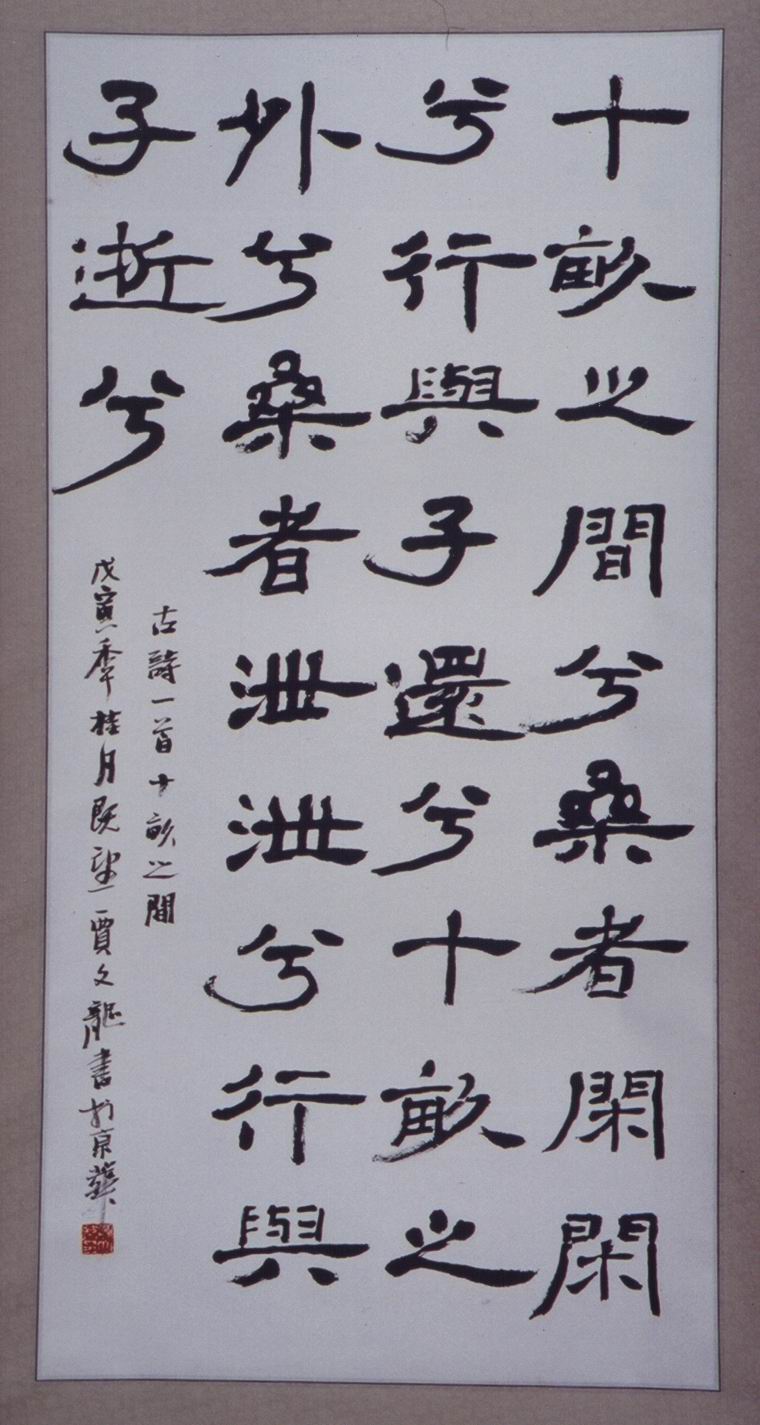 十畝之間兮桑者閑閑
兮行與子還兮十畝之
外兮桑者泄泄兮行與
子逝兮
古詩一首十畝之間
戊寅季桂月既望賈文龍書於京華